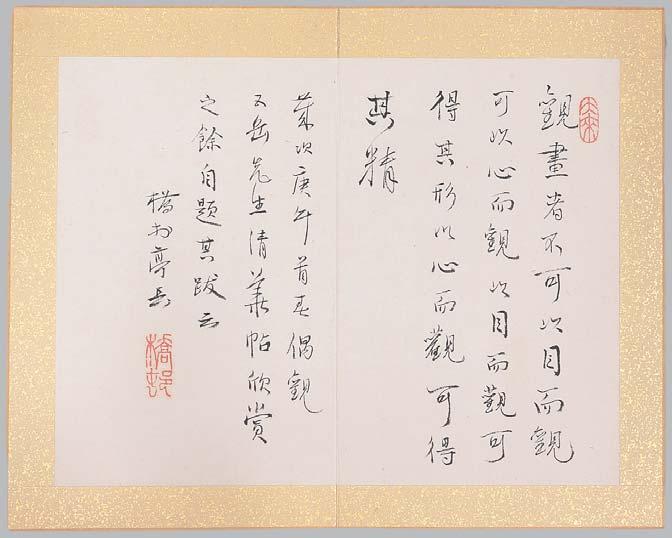 觀畫者不可以目而觀
可以心而觀以目而觀可
得其形以心而觀可得
其精
歲次庚午首偶觀
五岳先生清帖欣賞
之餘自題其跋云
橋邨亭長
橋邨